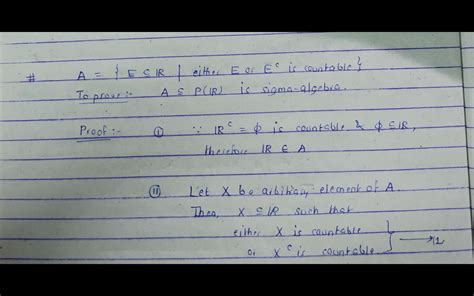 # A = { E ⊆ IR | either E or Eᶜ is countable }
To prove :- A ⊆ P(IR) is sigma-algebra.
Proof :- (i) ∵ IRᶜ = ϕ is countable & ϕ ⊆ IR,
therefore IR ∈ A
(ii) Let X be arbitrary element of A.
Then, X ⊆ IR such that
either X is countable
or Xᶜ is countable